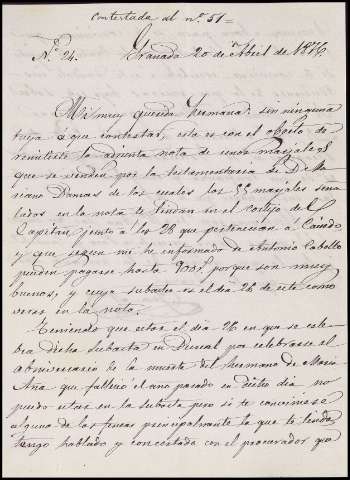 Contestada al nº 51=
Nº 24. Granada 20 de Abril de 1876
Mi muy querida hermana: sin ninguna
tuya á que contestar, esta es con el objeto de
remitirte la adjunta nota de unos marjales
que se venden por la testamentaria de Dn Ma
riano Damas de los cuales los 55 marjales seña
lados en la nota te lindan en el cortijo del
Capitán junto á los 28 que pertenecian á Caindo
y que segun me ha informado Antonio Cabello
pueden pagarse hasta porque son muy
buenos, y cuya subasta es el dia 26 de este como
veras en la nota.
Teniendo que estar el dia 26 en que se cele
bra dicha subasta en Durcal por celebrarse el
abiversario de la muerte del hermano de Maria
Ana que falleció el ano pasado en dicho dia no
puedo estar en la subasta pero si te conviniese
alguna de las fincas principalmente la que te linda,
tengo hablado y concertado con el procurador que